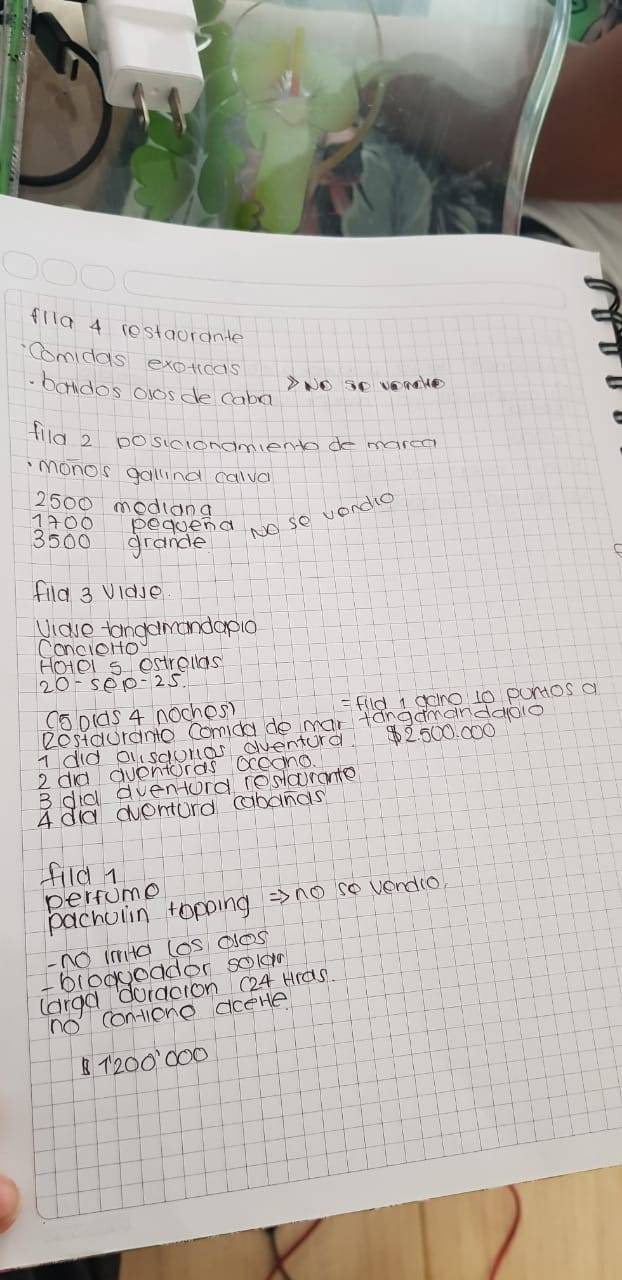 fila 4 restaorante
·Comidas exoticas
·baldos olos de caba > No se vendio
fila 2 posicionamiento de marca
·monos gallina calva
2500 mediana
1700 pequeña No se vendio
3500 grande
fila 3 viaje.
Viaje tangamandapio
Concierto
Hotel 5 estrellas
20-sep-25.
(5 dias 4 noches) =fila 1 gano 10 puntos a
Restaurante comida de mar tangamandapio
1 dia aventura. $2.500.000
2 dia aventuras oceano.
3 dia aventura restaurante
4 dia aventura cabañas
fila 1
perfume
pachulin topping => no se vendio.
-no irrita los olos
-bloqueador solar
larga duracion (24 Hras.
no contiene aceite.
$ 1'200'000